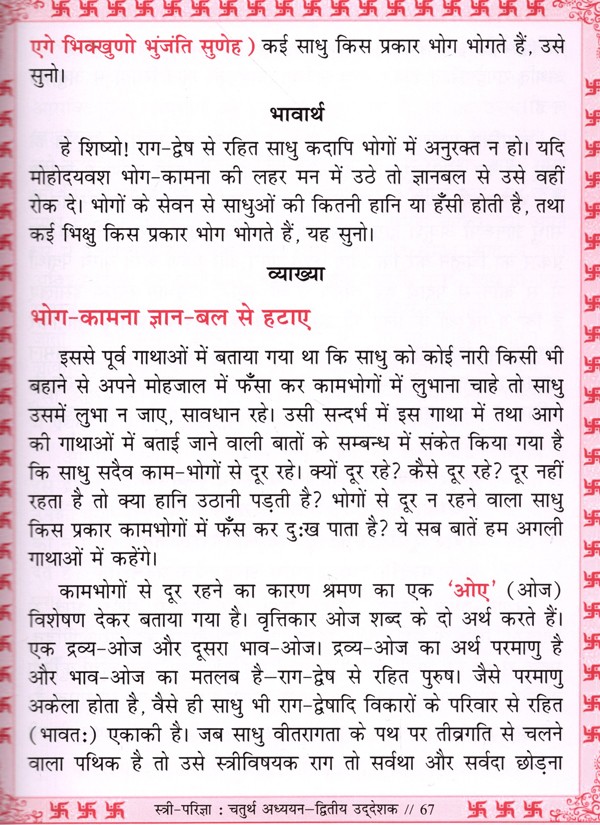 एगे भिक्खुणो भुंजंति सुणेह) कई साधु किस प्रकार भोग भोगते हैं, उसे
सुनो।
भावार्थ
हे शिष्यो! राग-द्वेष से रहित साधु कदापि भोगों में अनुरक्त न हो। यदि
मोहोदयवश भोग-कामना की लहर मन में उठे तो ज्ञानबल से उसे वहीं
रोक दे। भोगों के सेवन से साधुओं की कितनी हानि या हँसी होती है, तथा
कई भिक्षु किस प्रकार भोग भोगते हैं, यह सुनो।
व्याख्या
भोग-कामना ज्ञान-बल से हटाए
इससे पूर्व गाथाओं में बताया गया था कि साधु को कोई नारी किसी भी
बहाने से अपने मोहजाल में फँसा कर कामभोगों में लुभाना चाहे तो साधु
उसमें लुभा न जाए, सावधान रहे। उसी सन्दर्भ में इस गाथा में तथा आगे
की गाथाओं में बताई जाने वाली बातों के सम्बन्ध में संकेत किया गया है
कि साधु सदैव काम-भोगों से दूर रहे। क्यों दूर रहे? कैसे दूर रहे? दूर नहीं
रहता है तो क्या हानि उठानी पड़ती है? भोगों से दूर न रहने वाला साधु
किस प्रकार कामभोगों में फँस कर दुःख पाता है? ये सब बातें हम अगली
गाथाओं में कहेंगे।
कामभोगों से दूर रहने का कारण श्रमण का एक ‘ओए’ (ओज)
विशेषण देकर बताया गया है। वृत्तिकार ओज शब्द के दो अर्थ करते हैं।
एक द्रव्य-ओज और दूसरा भाव-ओज। द्रव्य-ओज का अर्थ परमाणु है
और भाव-ओज का मतलब है—राग-द्वेष से रहित पुरुष। जैसे परमाणु
अकेला होता है, वैसे ही साधु भी राग-द्वेषादि विकारों के परिवार से रहित
(भावतः) एकाकी है। जब साधु वीतरागता के पथ पर तीव्रगति से चलने
वाला पथिक है तो उसे स्त्रीविषयक राग तो सर्वथा और सर्वदा छोड़ना
स्त्री-परिज्ञा : चतुर्थ अध्ययन-द्वितीय उद्देशक // 67